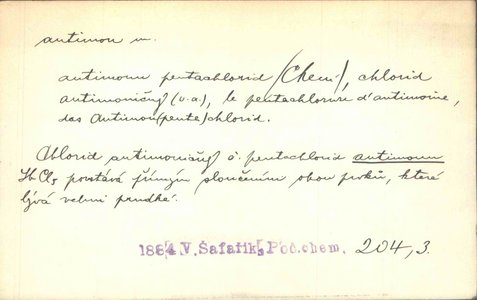 antimon m.
antimonu pentachlorid (Chem.), chlorid
antimoničný (v.a.), le pentachlorure d'antimoine,
das Antimon(penta)chlorid.
Chlorid antimoničný č. pentachlorid antimonu
Sb Cl5 povstává přímým sloučením obou prvků, které
bývá velmi prudké.
1884 V. Šafařík, Poč. chem. 204,3.